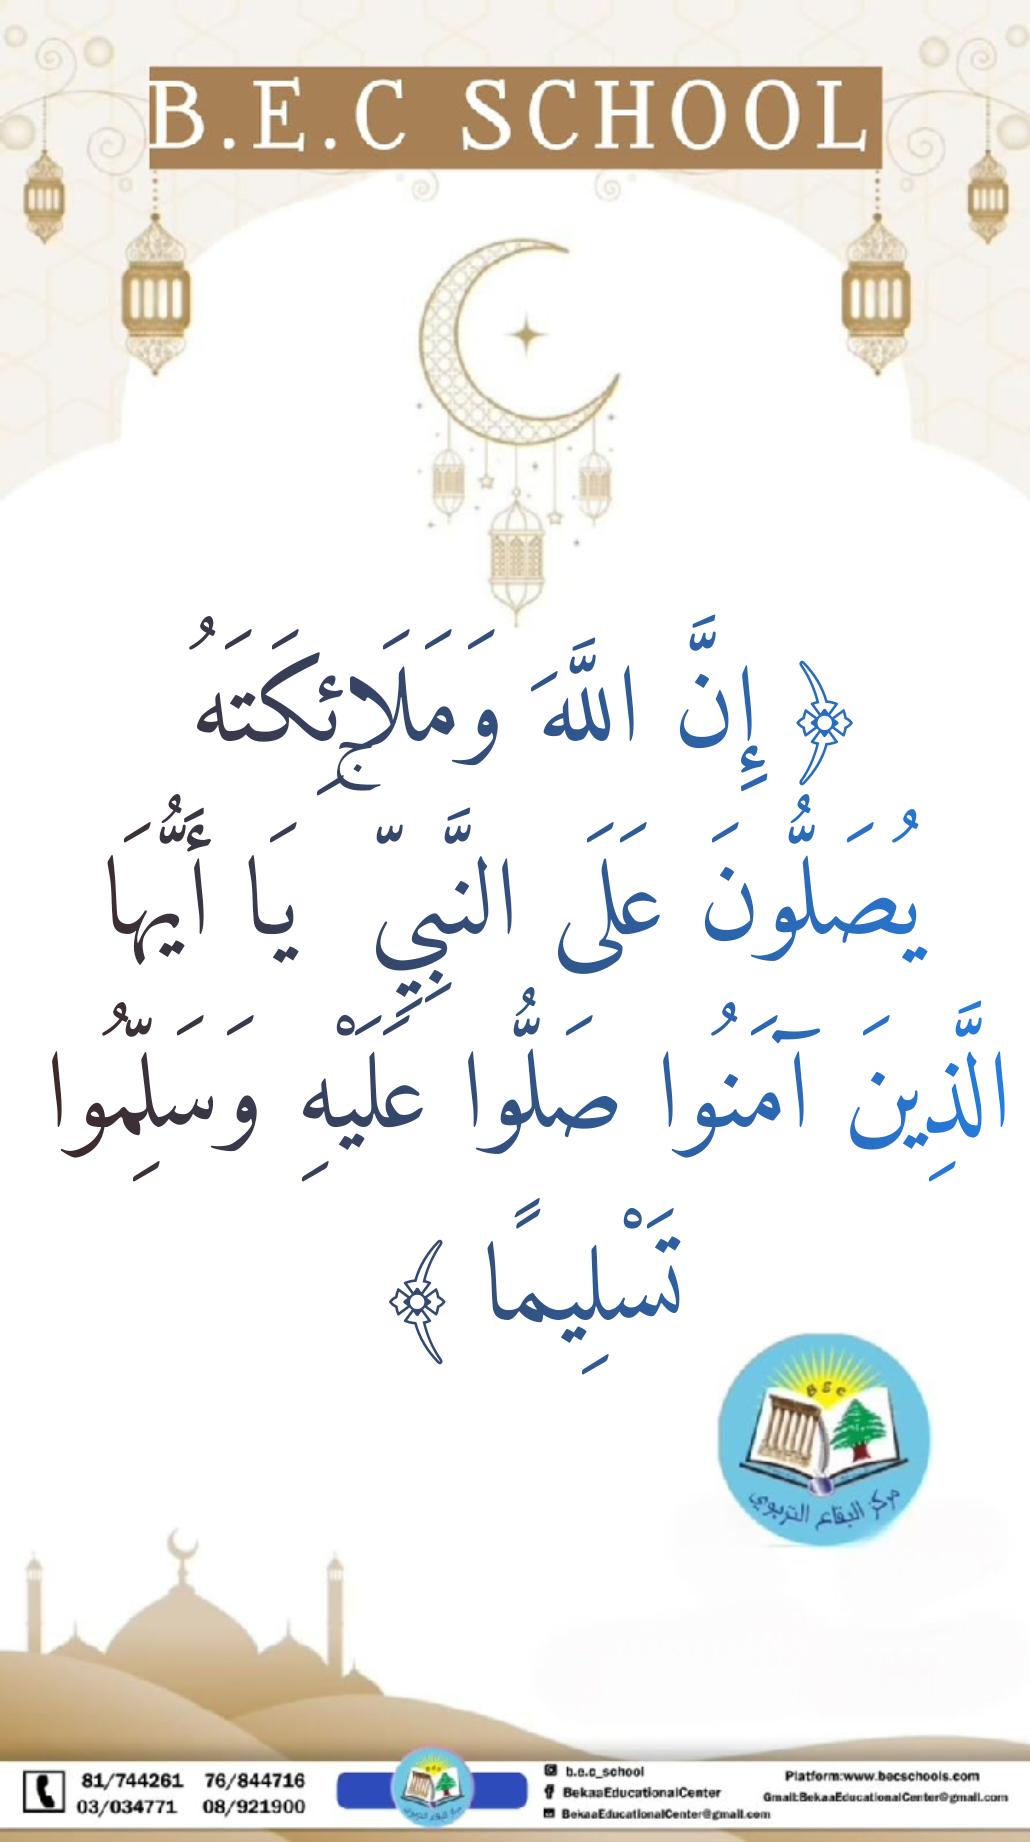 B.E.C SCHOOL
﴿ إِنَّ اللَّهَ وَمَلَائِكَتَهُ
يُصَلُّونَ عَلَى النَّبِيِّ ۚ يَا أَيُّهَا
الَّذِينَ آمَنُوا صَلُّوا عَلَيْهِ وَسَلِّمُوا
تَسْلِيمًا ﴾
B E C
مركز البقاع التربوي
81/744261 76/844716
03/034771 08/921900
مركز البقاع التربوي
b.e.c_school
BekaaEducationalCenter
BekaaEducationalCenter@gmail.com
Platform:www.becschools.com
Gmail:BekaaEducationalCenter@gmail.com